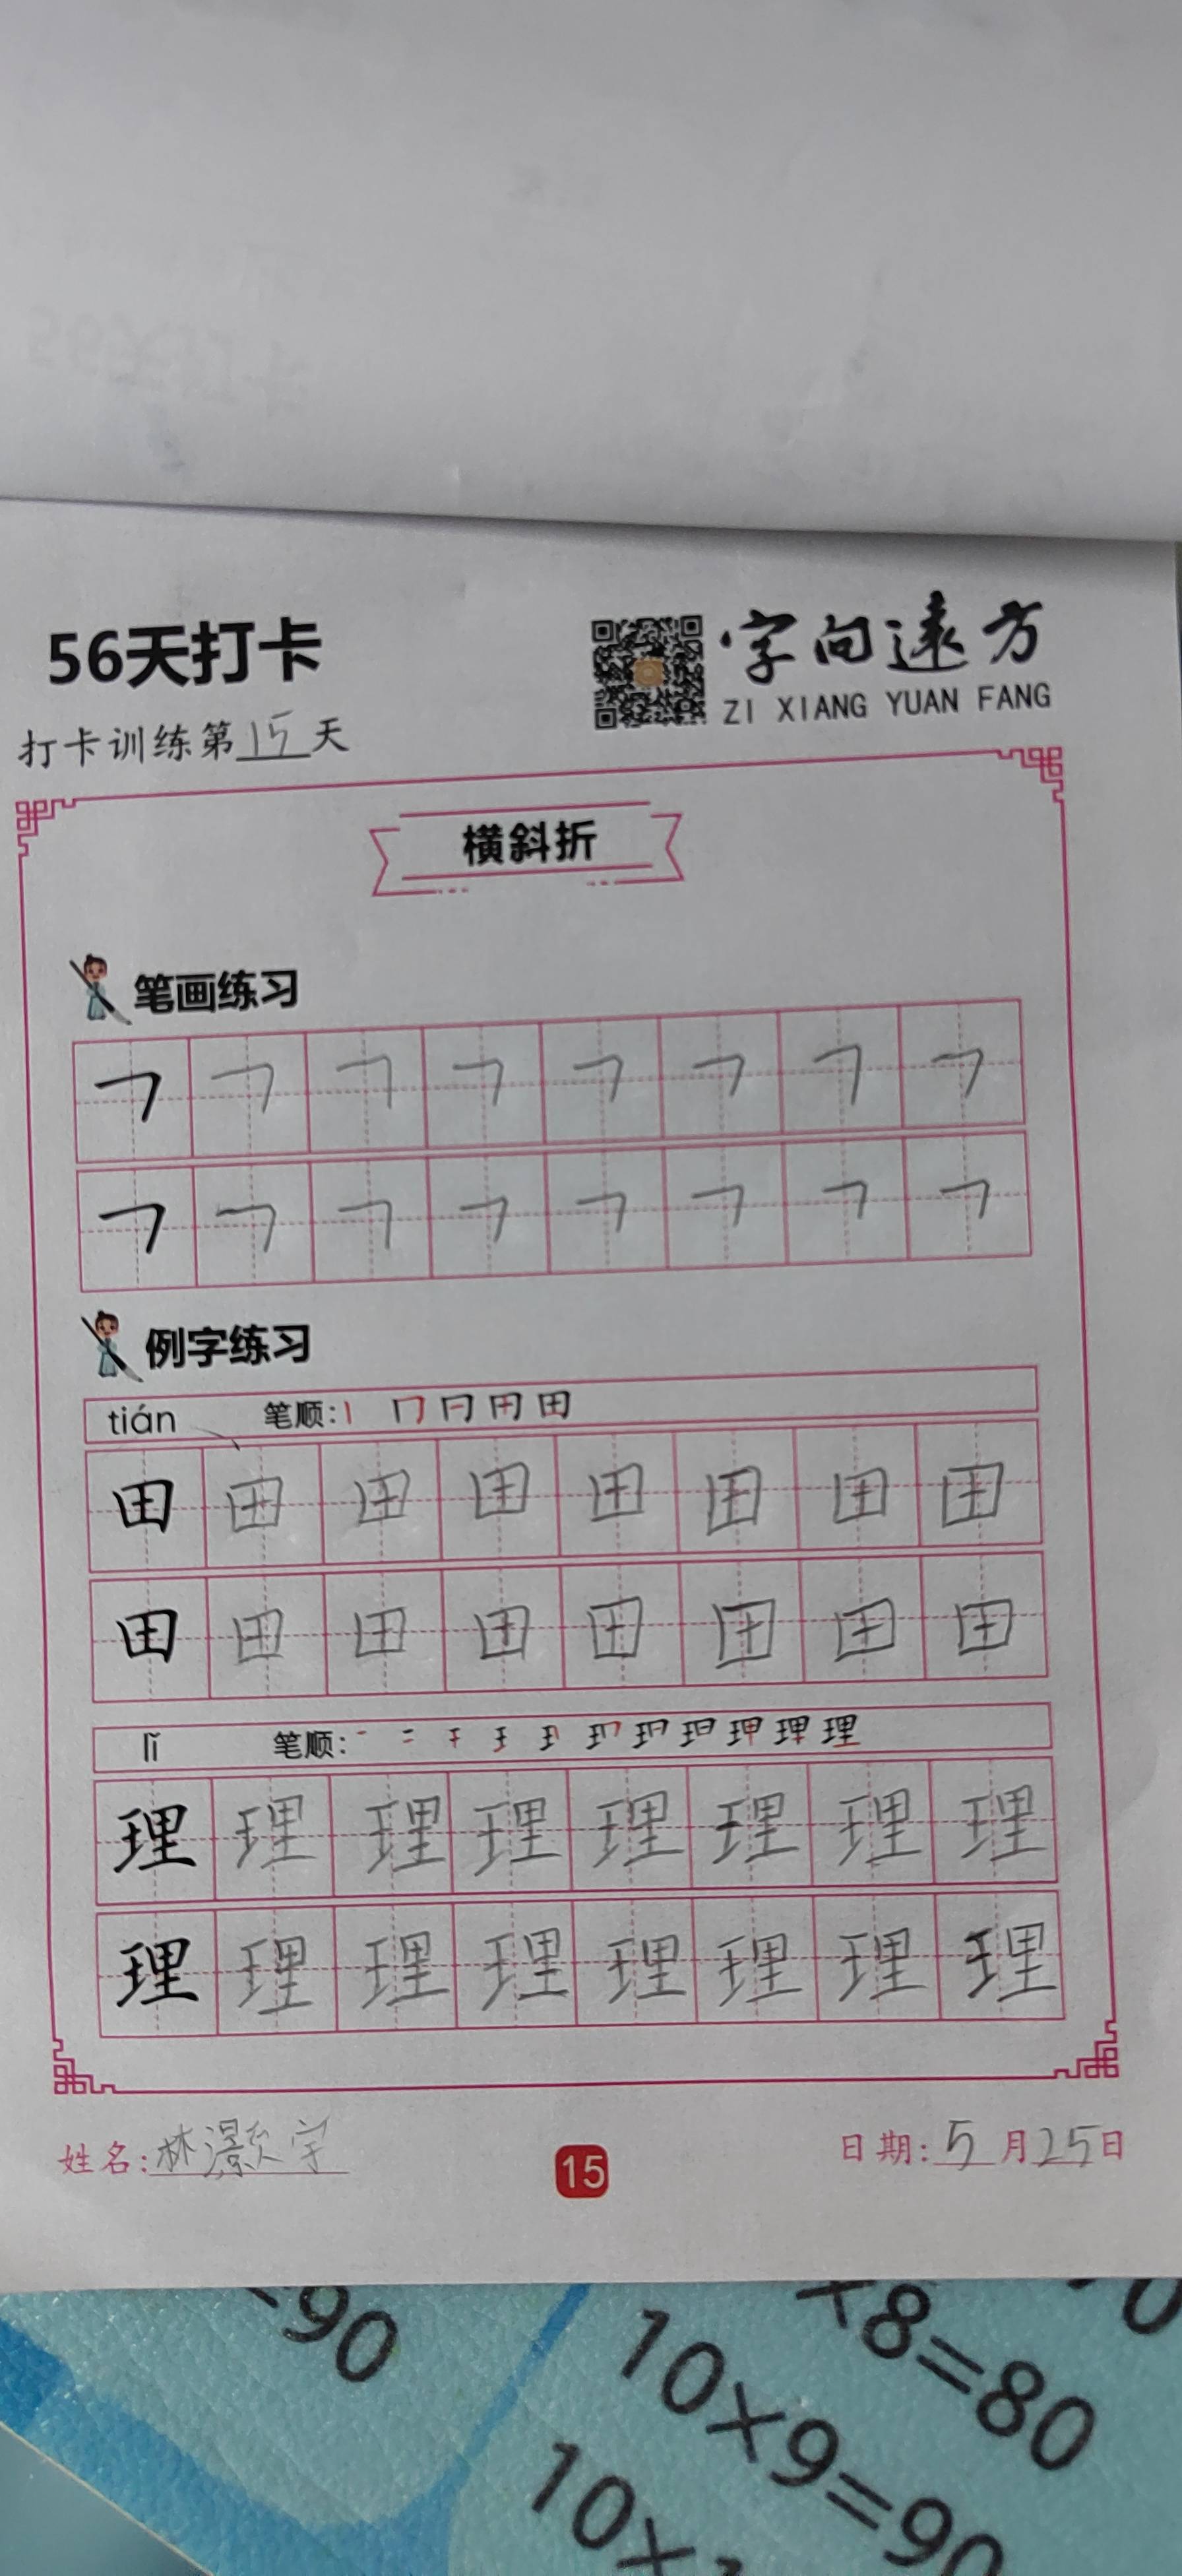 56天打卡
字向远方
ZI XIANG YUAN FANG
打卡训练第15天
横斜折
笔画练习
例字练习
tián 笔顺:
田 田 田 田 田 田 田 田
田 田 田 田 田 田 田 田
lǐ 笔顺:
理 理 理 理 理 理 理 理
理 理 理 理 理 理 理 理
姓名:林灏宇
15
日期:5月25日
=90
×8=80
10×9=90
10×